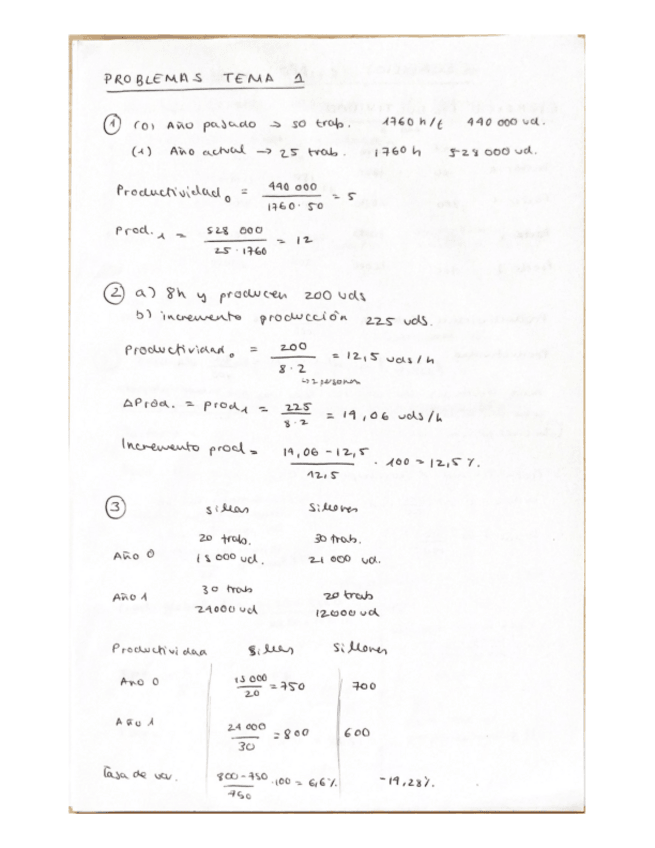 PROBLEMAS TEMA 1
① (0) Año pasado → 50 trab. 1760 h/t 440 000 ud.
(1) Año actual → 25 trab. 1760 h 528 000 ud.
Productividad₀ = 440 000 / 1760 · 50 = 5
Prod.₁ = 528 000 / 25 · 1760 = 12
② a) 8h y producen 200 uds
b) incremento producción 225 uds.
Productividad₀ = 200 / 8 · 2 = 12,5 uds/h
↳ 2 personas
ΔProd. = prod₁ = 225 / 8 · 2 = 14,06 uds/h
Incremento prod = 14,06 - 12,5 / 12,5 · 100 = 12,5 %.
③ sillas Sillones
20 trab. 30 trab.
Año 0 15 000 ud. 21 000 ud.
Año 1 30 trab 20 trab
24000 ud 12000 ud
Productividad Sillas Sillones
Año 0 15 000 / 20 = 750 700
Año 1 24 000 / 30 = 800 600
Tasa de var. 800 - 750 / 750 · 100 = 6,6 % -14,28 %.